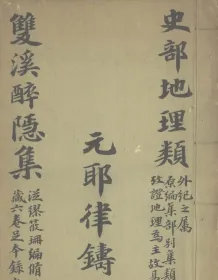 史部地理類
外紀之屬
原編集部別集類
攷證地理爲主故
元耶律鑄
雙溪醉隱集
從繆筱珊編脩
藏六卷足本錄